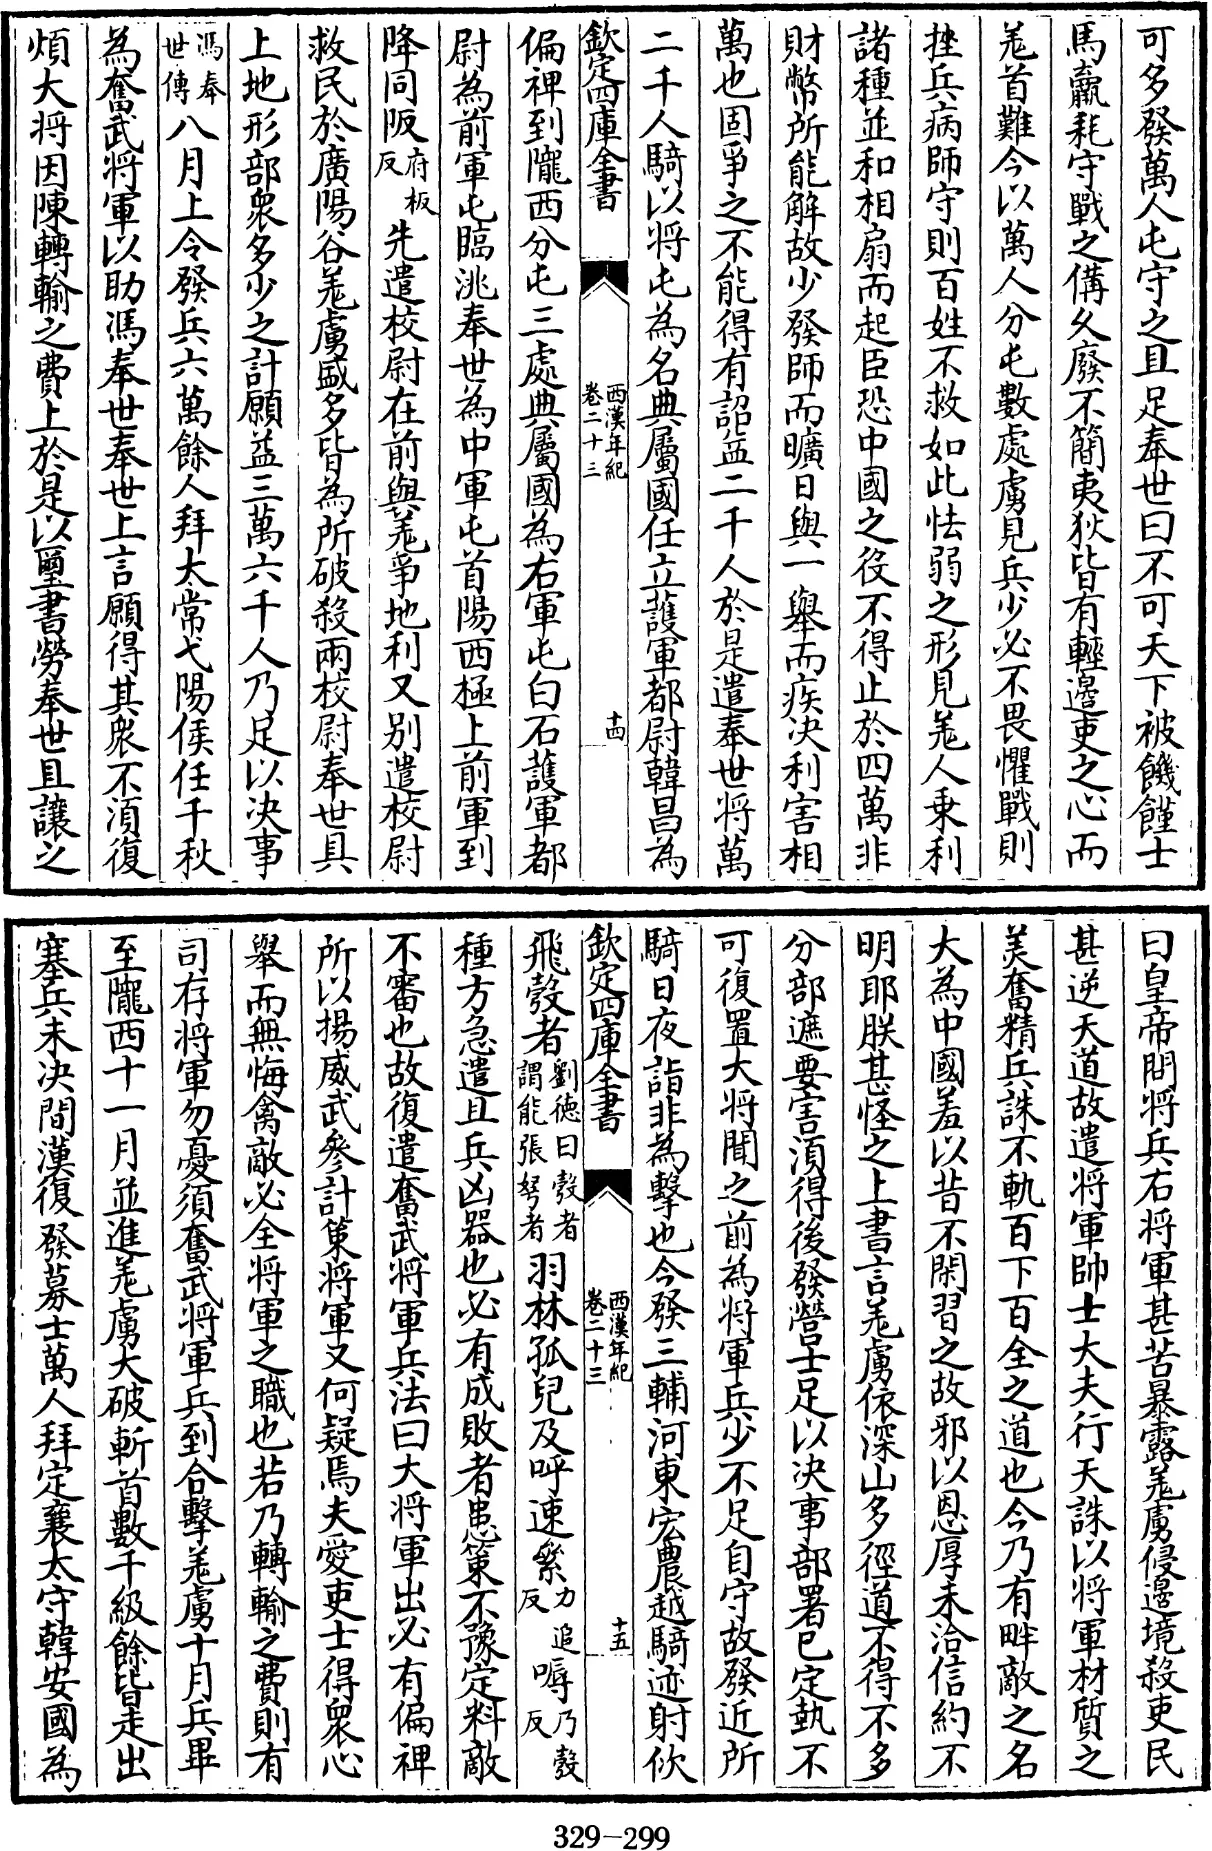 可多發萬人屯守之且足奉世曰不可天下被饑饉士
馬羸耗守戰之備久廢不簡夷狄皆有輕邊吏之心而
羌首難今以萬人分屯數處虜見兵少必不畏懼戰則
挫兵病師守則百姓不救如此怯弱之形見羌人乗利
諸種並和相扇而起臣恐中國之役不得止於四萬非
財幣所能解故少發師而曠日與一舉而疾決利害相
萬也固爭之不能得有詔益二千人於是遣奉世將萬
二千人騎以將屯為名典屬國任立護軍都尉韓昌為
欽定四庫全書
西漢年紀
卷二十三
十四
偏裨到隴西分屯三處典屬國為右軍屯白石護軍都
尉為前軍屯臨洮奉世為中軍屯首陽西極上前軍到
降同阪府板反先遣校尉在前與羌爭地利又别遣校尉
救民於廣陽谷羌虜盛多皆為所破殺兩校尉奉世具
上地形部衆多少之計願益三萬六千人乃足以決事
馮奉世傳八月上令發兵六萬餘人拜太常弋陽侯任千秋
為奮武將軍以助馮奉世奉世上言願得其衆不須復
煩大将因陳轉輸之費上於是以璽書勞奉世且讓之
曰皇帝問將兵右將軍甚苦暴露羌虜侵邊境殺吏民
甚逆天道故遣將軍帥士大夫行天誅以將軍材質之
美奮精兵誅不軌百下百全之道也今乃有畔敵之名
大為中國羞以昔不閑習之故邪以恩厚未洽信約不
明耶朕甚怪之上書言羌虜依深山多徑道不得不多
分部遮要害須得後發營士足以決事部署已定埶不
可復置大將聞之前為將軍兵少不足自守故發近所
騎日夜詣非為擊也今發三輔河東宏農越騎迹射佽
欽定四庫全書
西漢年紀
卷二十三
十五
飛彀者劉德曰彀者謂能張弩者羽林孤兒及呼速絫力追反嗕乃彀反
種方急遣且兵凶器也必有成敗者患策不豫定料敵
不審也故復遣奮武將軍兵法曰大將軍出必有偏裨
所以揚威武參計策將軍又何疑焉夫愛吏士得衆心
舉而無悔禽敵必全將軍之職也若乃轉輸之費則有
司存將軍勿憂須奮武將軍兵到合擊羌虜十月兵畢
至隴西十一月並進羌虜大破斬首數千級餘皆走出
塞兵未決間漢復發募士萬人拜定襄太守韓安國為
329-299